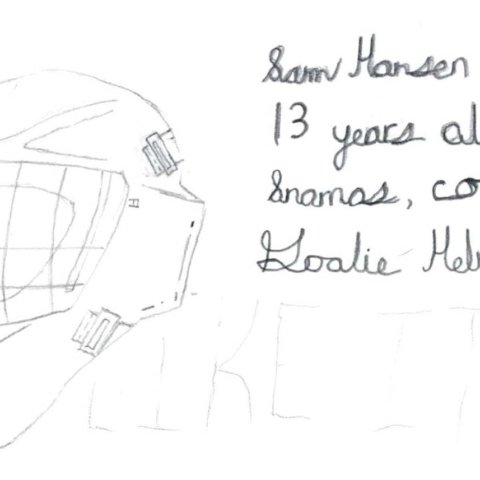 Sam Hansen
13 years
Snamas, co
Goalie Hel